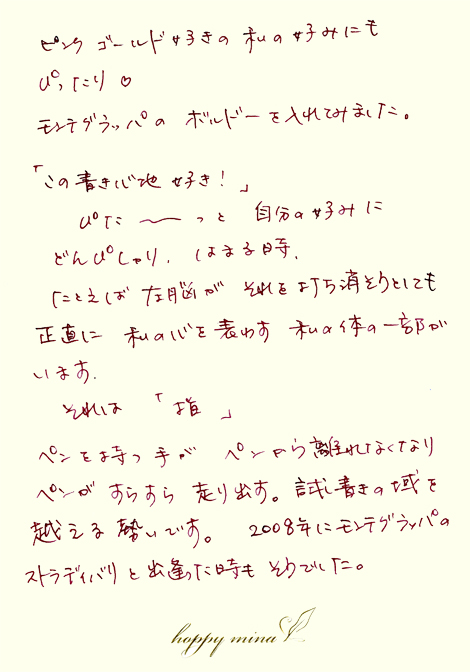 ピンクゴールド好きの私の好みにも
ぴったり♡
モンテグラッパの ボルドーを入れてみました。
「この書き心地 好き！」
ぴた〜〜っと 自分の好みに
どんぴしゃり、はまる時、
たとえば 左脳が それを打ち消そうとしても
正直に 私の心を表わす 私の体の一部が
います。
それは 「指」
ペンを持つ手が ペンから離れなくなり
ペンが すらすら 走り出す。試し書きの域を
越える勢いです。 2008年にモンテグラッパの
ストラディバリと出逢った時もそうでした。
happy mina